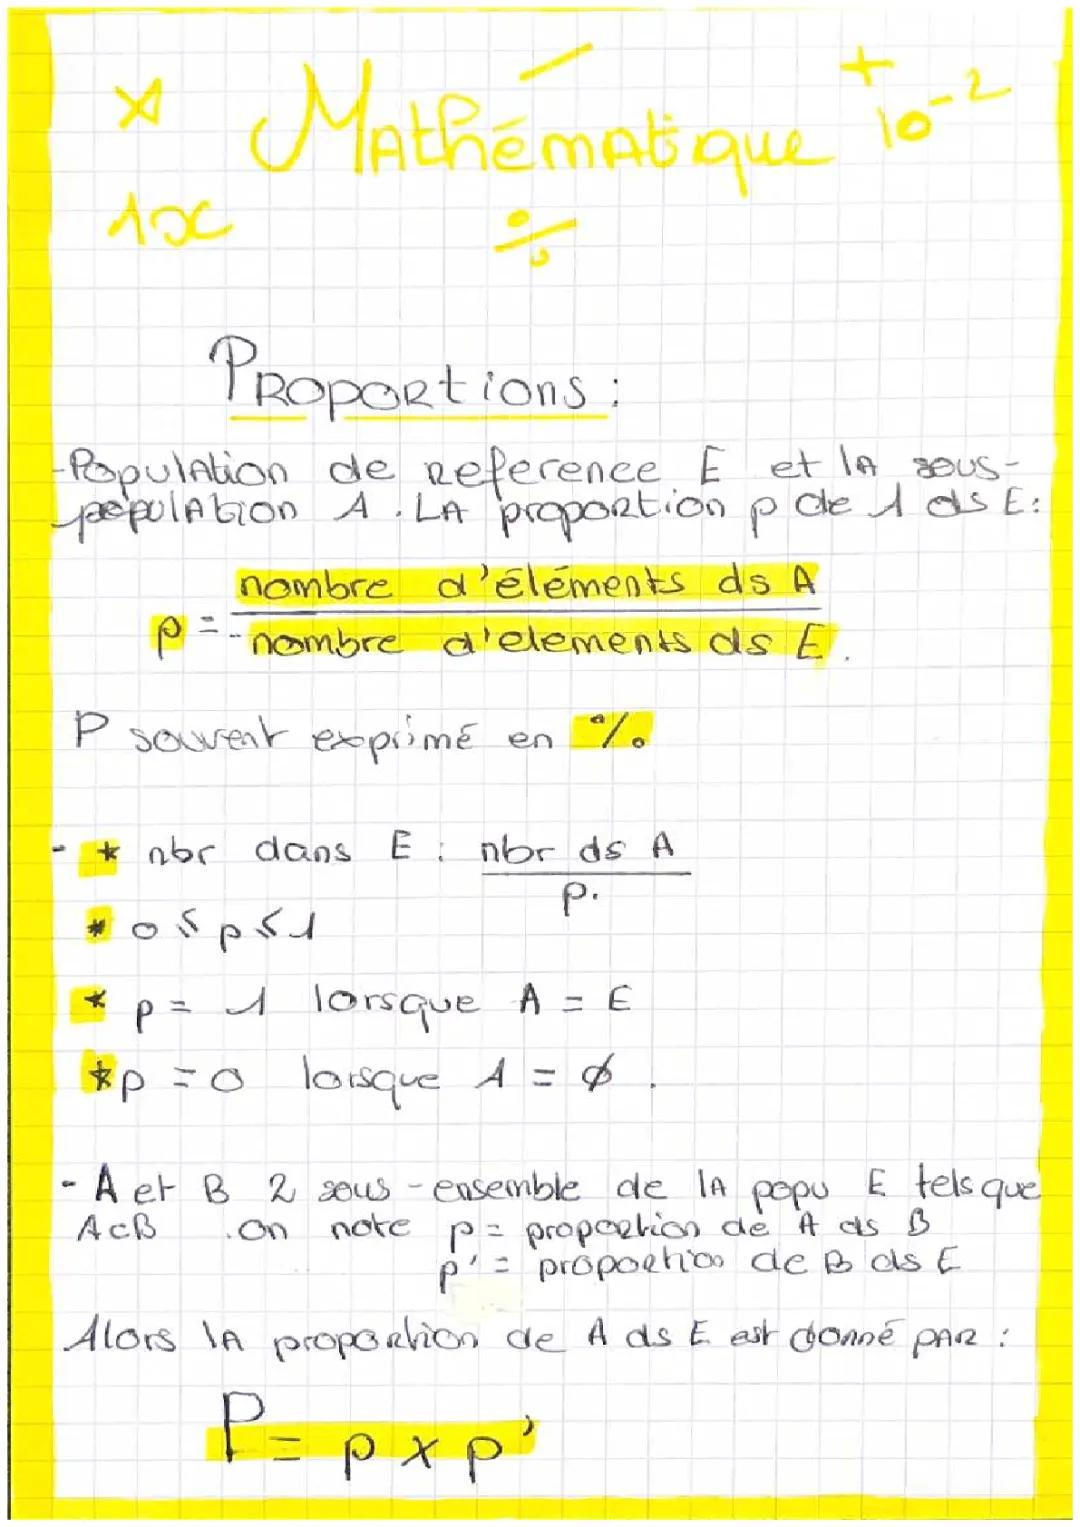 Mathématique
10⁻²
1x
%
Proportions :
- Population de reference E et la sous-
population A. La proportion p de A ds E :
nombre d'éléments ds A
p = nombre d'elements ds E.
P souvent exprimé en %
- * nbr dans E : nbr ds A
p.
* 0 ≤ p ≤ 1
* p = 1 lorsque A = E
* p = 0 lorsque A = ∅.
- A et B 2 sous-ensemble de la popu E tels que
A⊂B . On note p = proportion de A ds B
p' = proportion de B ds E
Alors la proportion de A ds E est donné par :
P = p × p'